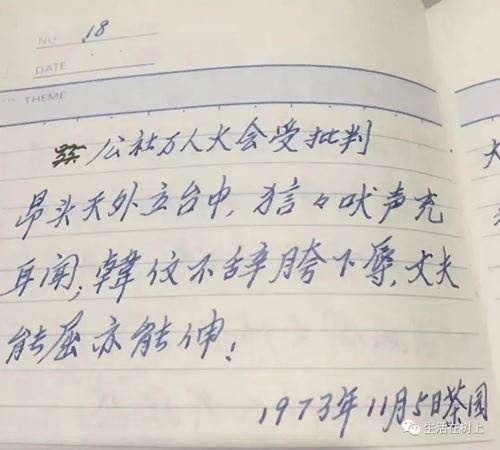 NO 18
DATE
THEME
公社万人大会受批判
昂头天外立台中,狺々吠声充
耳闻,韓伩不辞胯下辱,丈夫
能屈亦能伸!
1973年11月5日茶园
生活在树上